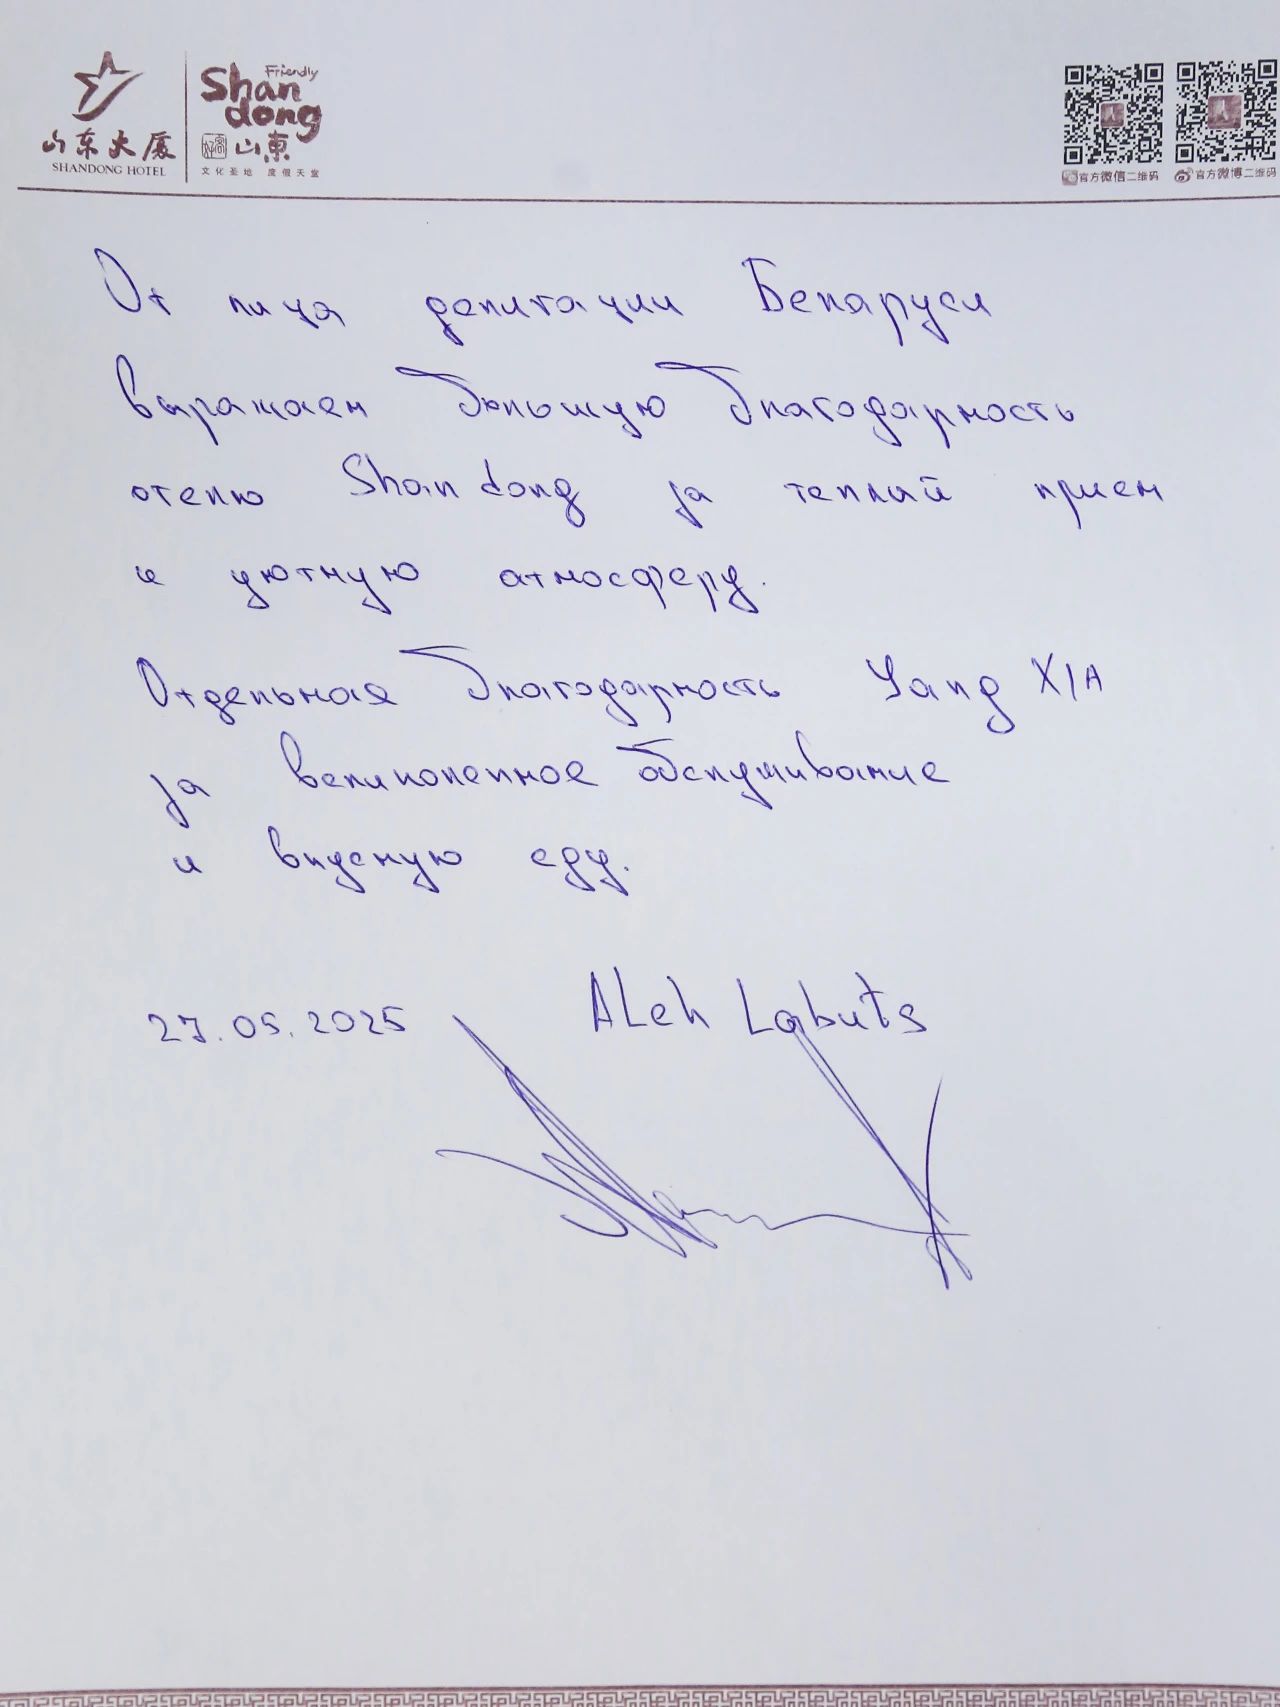 山东大厦
SHANDONG HOTEL
Friendly
Shan
dong
好客
山東
文化圣地 度假天堂
官方微信二维码 官方微博二维码
От лица делигации Беларуси
выражаем большую благодарность
отелю Shandong за теплый прием
и уютную атмосферу.
Отдельная благодарность Yang XIA
за великолепное обслуживание
и вкусную еду.
27.05.2025 ALeh Labuts